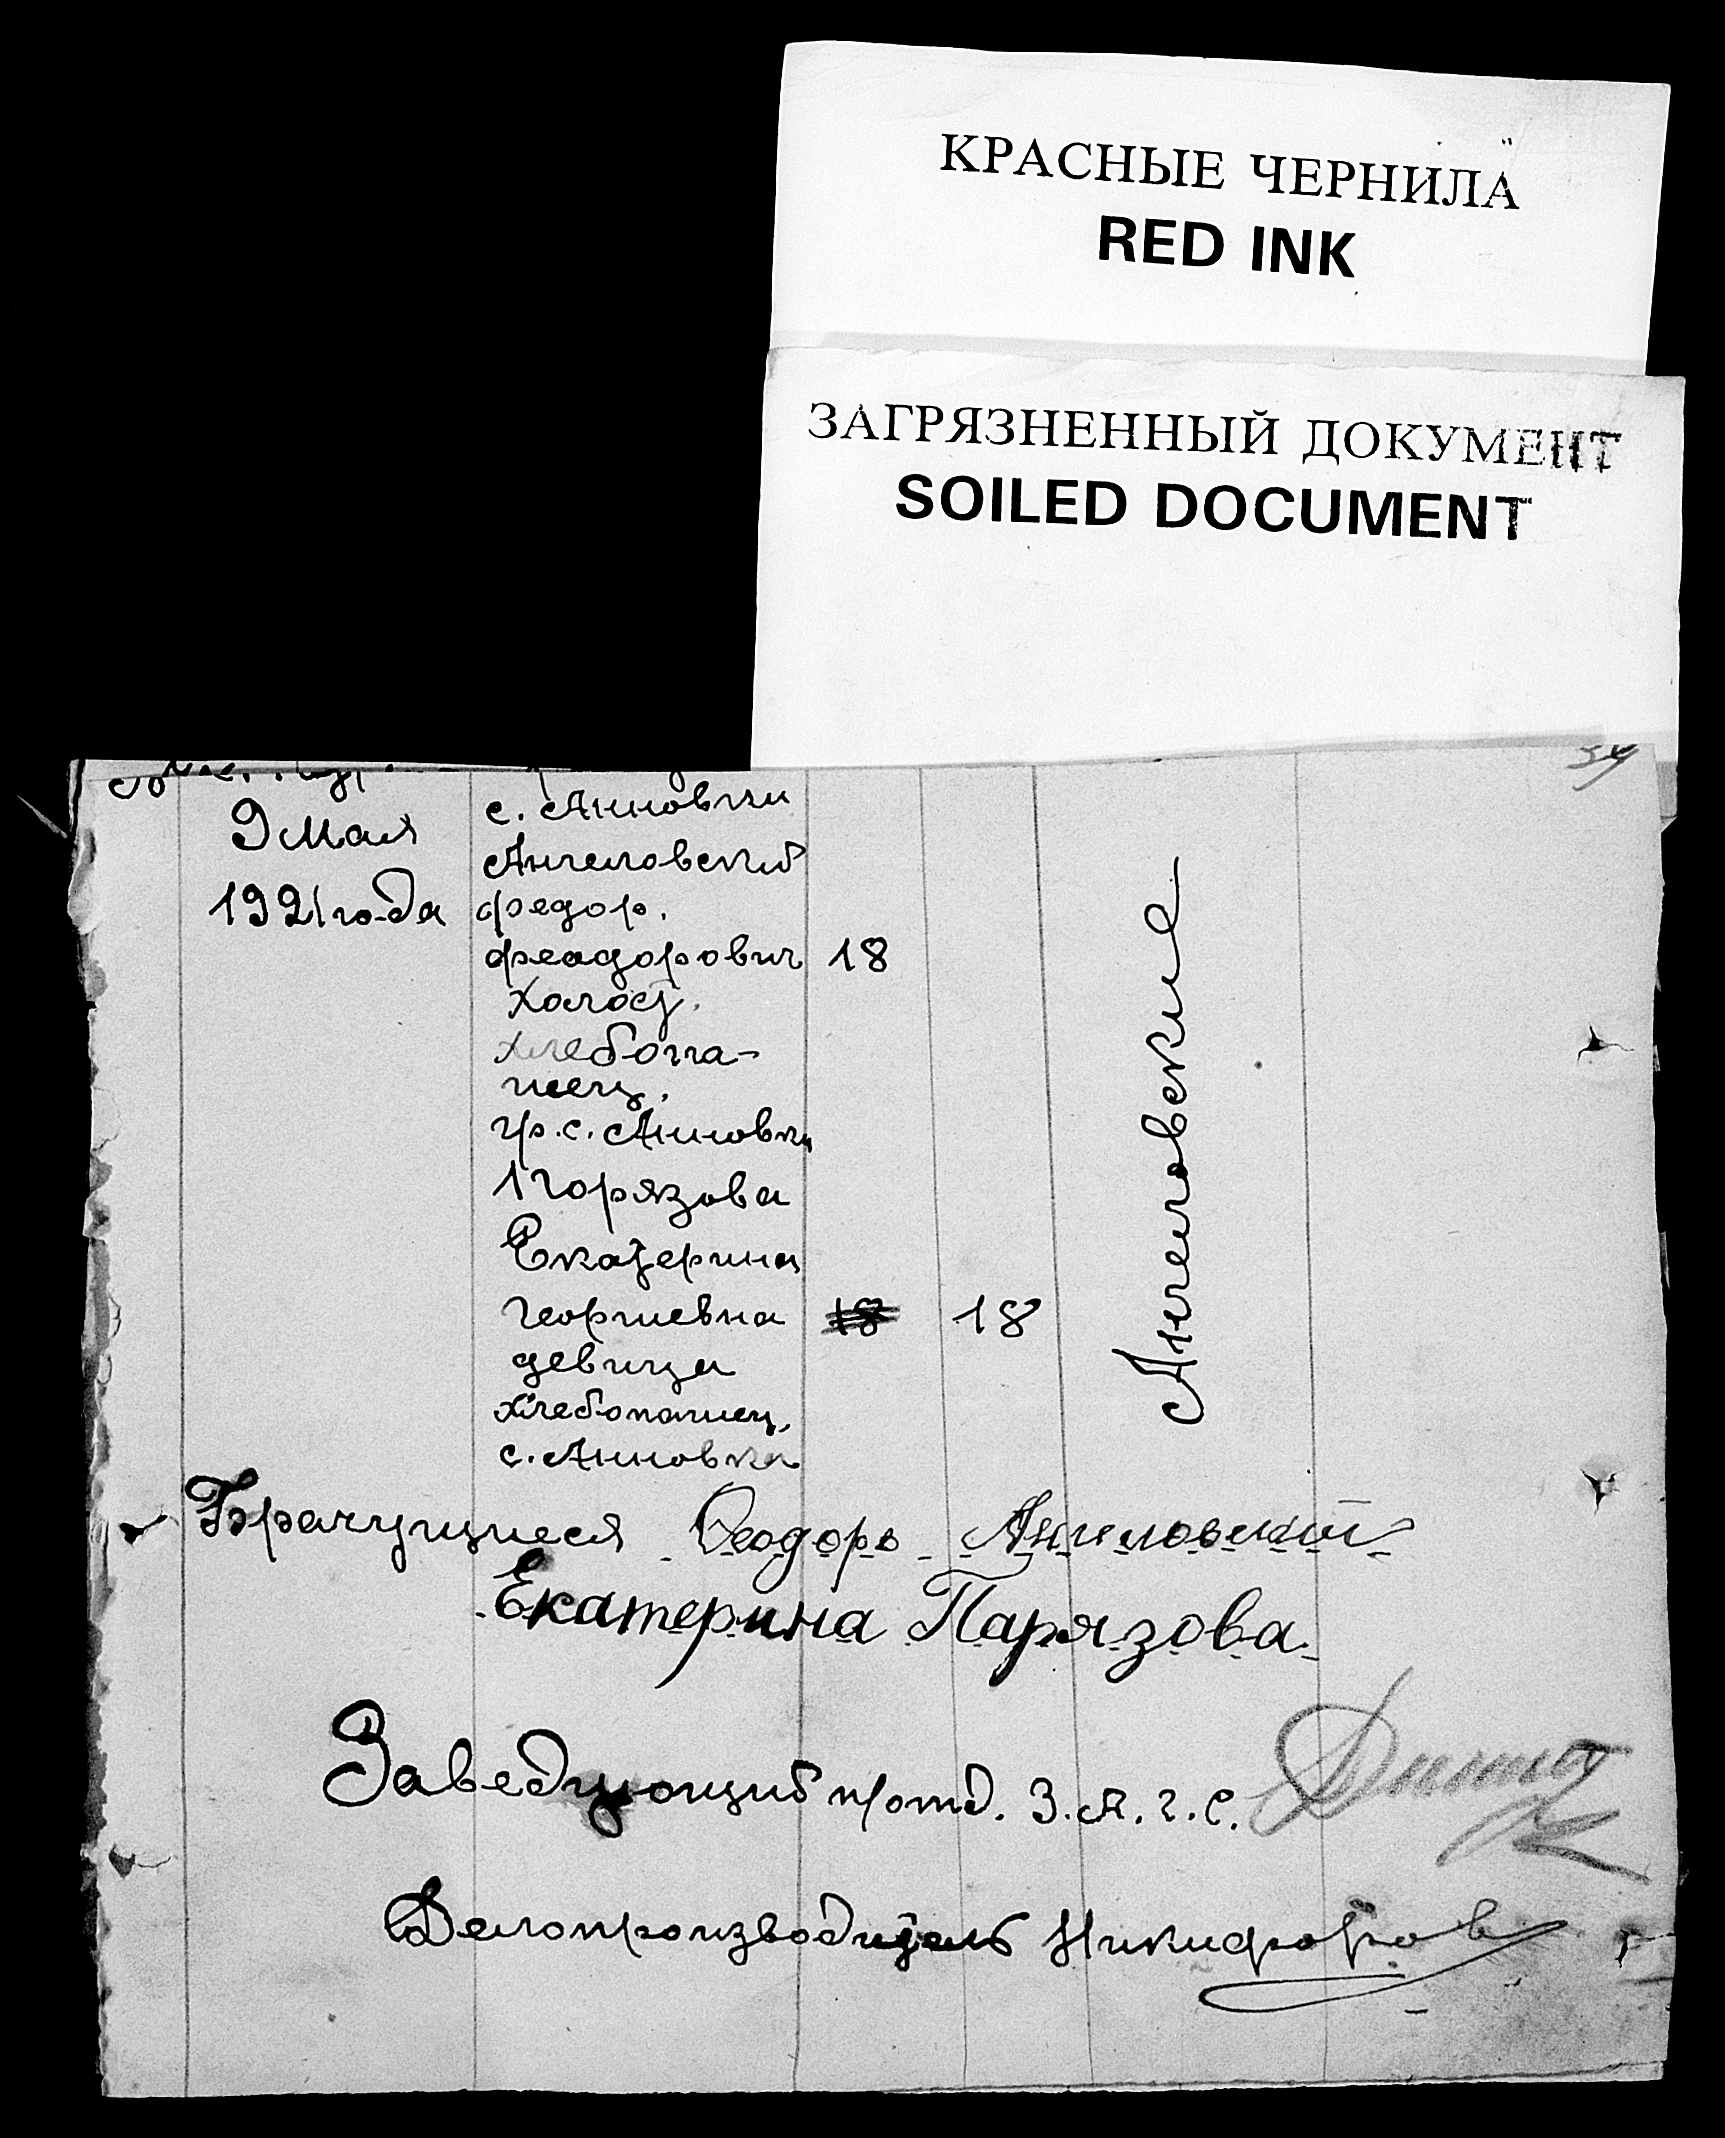 КРАСНЫЕ ЧЕРНИЛА
RED INK
ЗАГРЯЗНЕННЫЙ ДОКУМЕНТ
SOILED DOCUMENT
9 мая
1921 года
с. Анновки
Ангеловский
федор.
феодорович 18
холост.
хлебопа-
шец.
гр. с. Анновки
Порязова
Екатерина
Георгиевна 18 18
девица
хлебопашец,
с. Анновки
Ангеловские
Брачущиеся Феодоръ Ангеловский
Екатерина Парязова.
Заведующий п/отд. З.А.Г.С.
Делопроизводитель Никифоров